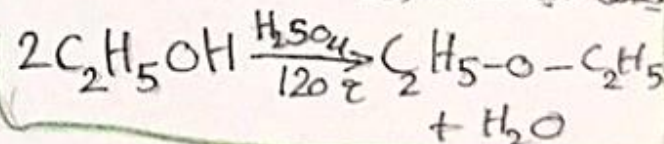 2C₂H₅OH \xrightarrow[120 τ]{H₂SO₄} C₂H₅-O-C₂H₅
+ H₂O